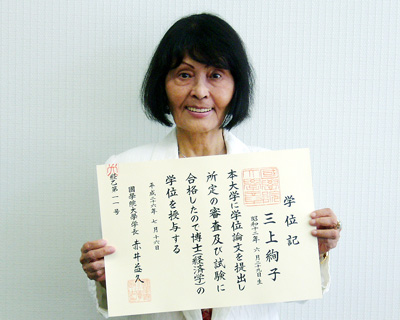 学位記
三上絢子
昭和十三年六月二十九日生
本大学に学位論文を提出し
所定の審査及び試験に
合格したので博士(経済学)の
学位を授与する
平成二六年七月十六日
國學院大學学長 赤井益久
経乙第一一号